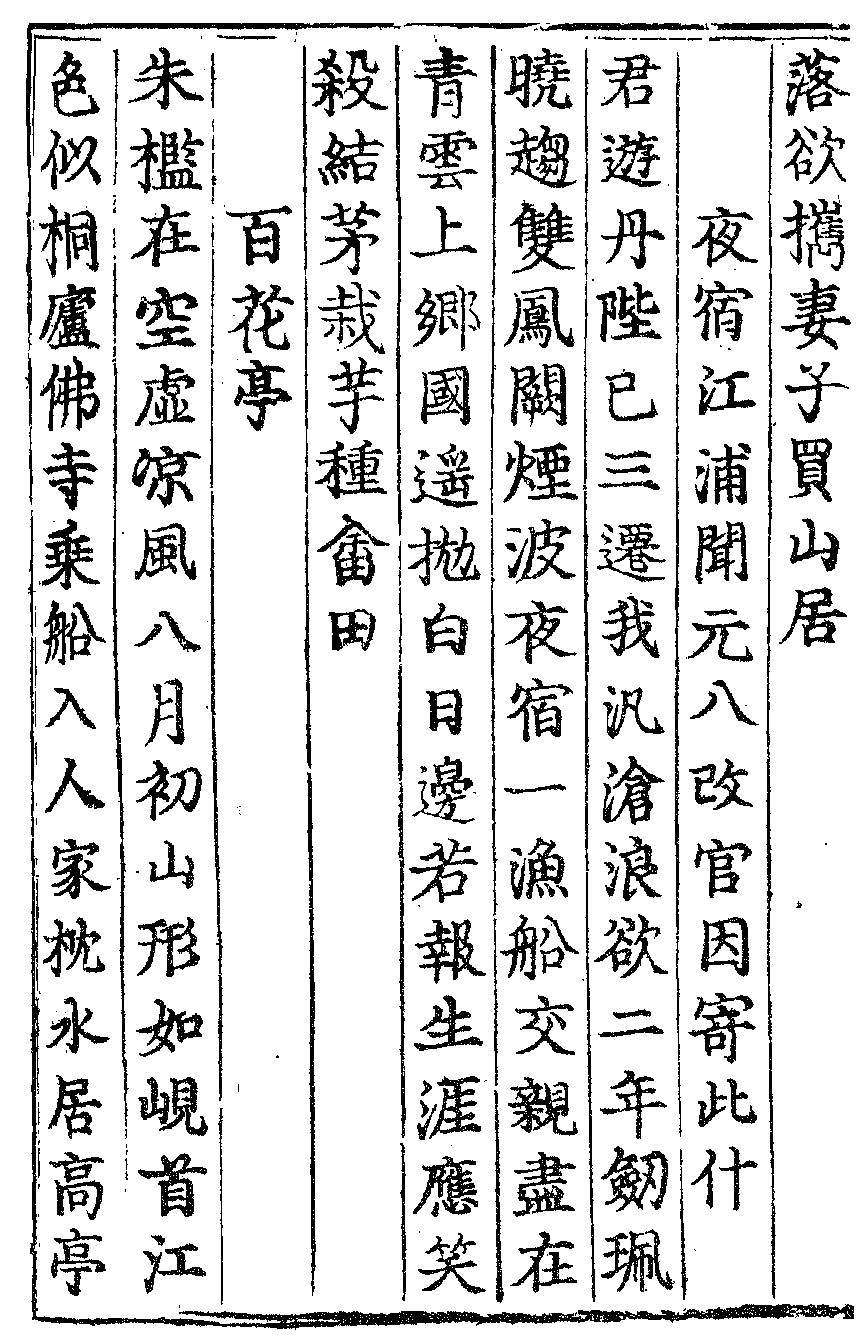 落欲攜妻子買山居
夜宿江浦聞元八改官因寄此什
君遊丹陛已三遷我汎滄浪欲二年劒珮
曉趨雙鳳闕煙波夜宿一漁船交親盡在
青雲上鄉國遥拋白日邊若報生涯應笑
殺結茅栽芋種畬田
百花亭
朱檻在空虛凉風八月初山形如峴首江
色似桐廬佛寺乗船入人家枕水居高亭